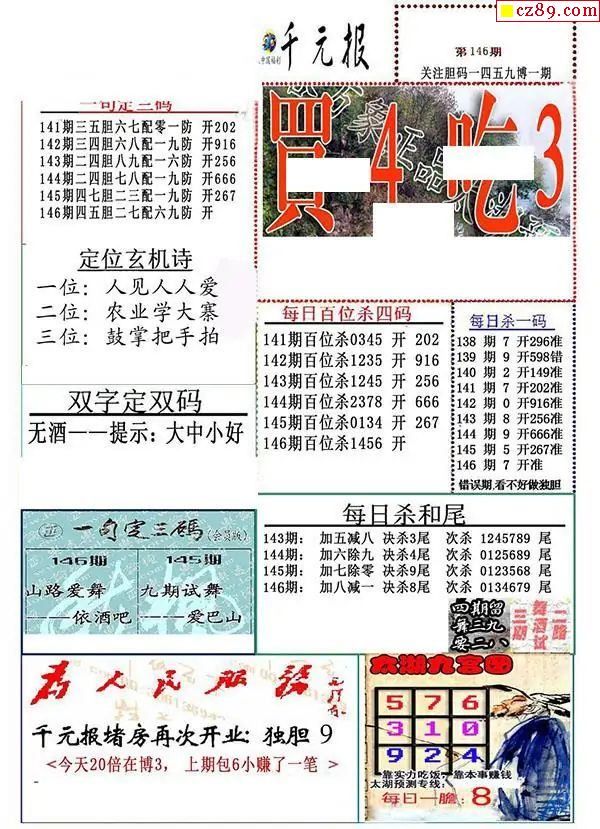 cz89.com
千元报
中国福利
第146期
关注胆码一四五九博一期
一句定三码
141期三五胆六七配零一防 开202
142期三四胆六八配一九防 开916
143期二四胆八九配一六防 开256
144期二四胆七八配一九防 开666
145期四七胆二三配一九防 开267
146期四五胆二七配六九防 开
買 4 吃 3
定位玄机诗
一位：人见人人爱
二位：农业学大寨
三位：鼓掌把手拍
每日百位杀四码
141期百位杀0345 开 202
142期百位杀1235 开 916
143期百位杀1245 开 256
144期百位杀2378 开 666
145期百位杀0134 开 267
146期百位杀1456 开
每日杀一码
138 期 7 开296准
139 期 9 开598错
140 期 2 开149准
141 期 7 开202准
142 期 0 开916准
143 期 8 开256准
144 期 9 开666准
145 期 5 开267准
146 期 7 开准
错误期,看不好做独胆
双字定双码
无酒——提示：大中小好
每日杀和尾
143期： 加五减八 决杀3尾 次杀 1245789 尾
144期： 加六除九 决杀4尾 次杀 0125689 尾
145期： 加七除零 决杀9尾 次杀 0123568 尾
146期： 加八减一 决杀8尾 次杀 0134679 尾
一句定三碼(会员版)
146期 145期
山路爱舞 九期试舞
——依酒吧 ——爱巴山
四期留
舞三九
要二八
三期
舞酒试
二路
為人民服務
千元报堵房再次开业: 独胆 9
<今天20倍在博3， 上期包6小赚了一笔 >
太湖九宫图
5 7 6
3 1 0
9 2 4
靠实力吃饭，靠本事赚钱
太湖预测专线:
每日一胆: 8